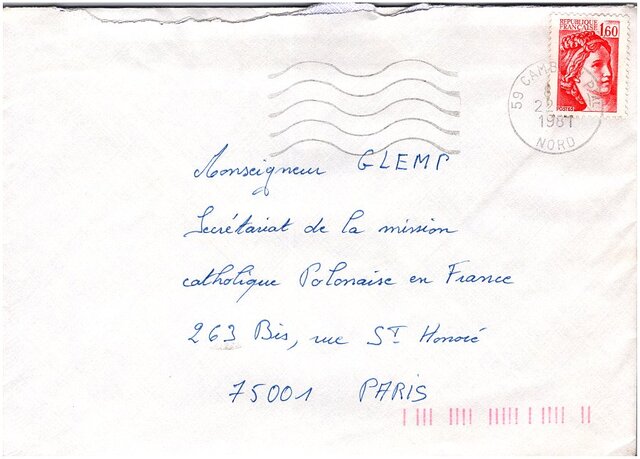 REPUBLIQUE
FRANÇAISE 1,60
POSTES
59 CAMB
22
1981
NORD
Monseigneur GLEMP
Secrétariat de la mission
catholique Polonaise en France
263 Bis, rue St Honoré
75001 PARIS